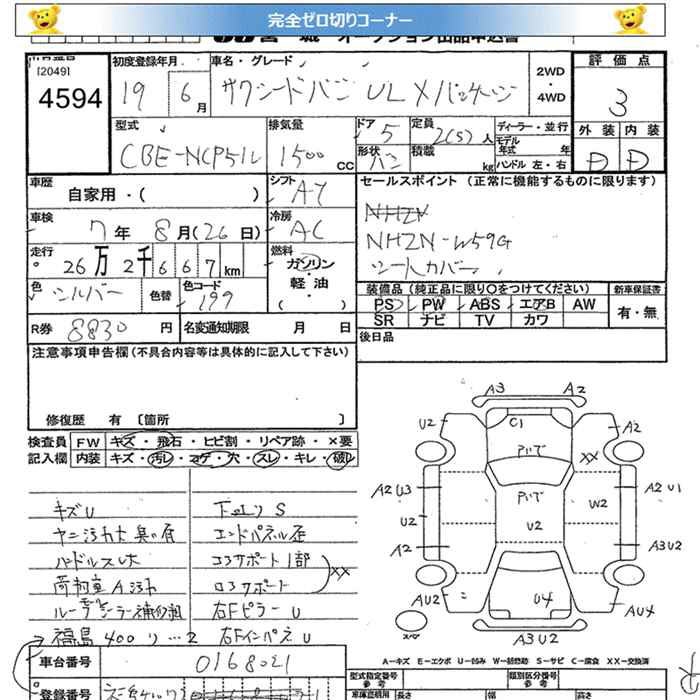 完全ゼロ切りコーナー
宮城 オークション出品申込書
[2049]
4594
初度登録年月 19 6月
車名・グレード サクシードバン UL Xパッケージ
2WD・4WD
評価点 3
外装 内装
D D
型式 CBE-NCP51V
排気量 1500 CC
ドア 5
定員 2(5)人
形状 バン
積載 kg
ディーラー・並行
モデル年式 年
ハンドル 左・右
車歴 自家用・( )
シフト AT
車検 7年 8月(26日)
冷房 AC
走行 26万2千667km
燃料 ガソリン・軽油・( )
色 シルバー
色替
色コード 199
R券 8830円
名変通知期限 月 日
セールスポイント (正常に機能するものに限ります)
NHZN
NHZN-W59G
シートカバー
装備品(純正品に限り○をつけてください)
新車保証書
PS PW ABS エアB AW
SR ナビ TV カワ
有・無
後日品
注意事項申告欄(不具合内容等は具体的に記入して下さい)
修復歴 有 〔箇所 〕
検査員記入欄
FW キズ・飛石・ヒビ割・リペア跡・×要
内装 キズ・汚レ・コゲ・穴・スレ・キレ・破レ
キズU
ヤニ汚れ大 臭い有
ハンドルスレ大
荷物室A汚れ
ルーフシーラー補修粗
→福島400り…2
下回りS
エンドパネル歪
コアサポート1部
ロアサポート
XX
右FピラーU
右FインパネU
A3 A2
U2 C1 A2
XX
A2U3 A2U1
W2
U2 U2
A2 A3U2
AU2 U4 AU4
A3U2
スペア
A―キズ E―エクボ U―凹み W―補修跡 S―サビ C―腐食 XX―交換済
車台番号 0168021
登録番号
型式指定番号 参考
類別区分番号 参考
車庫証明用 長さ 幅 高さ